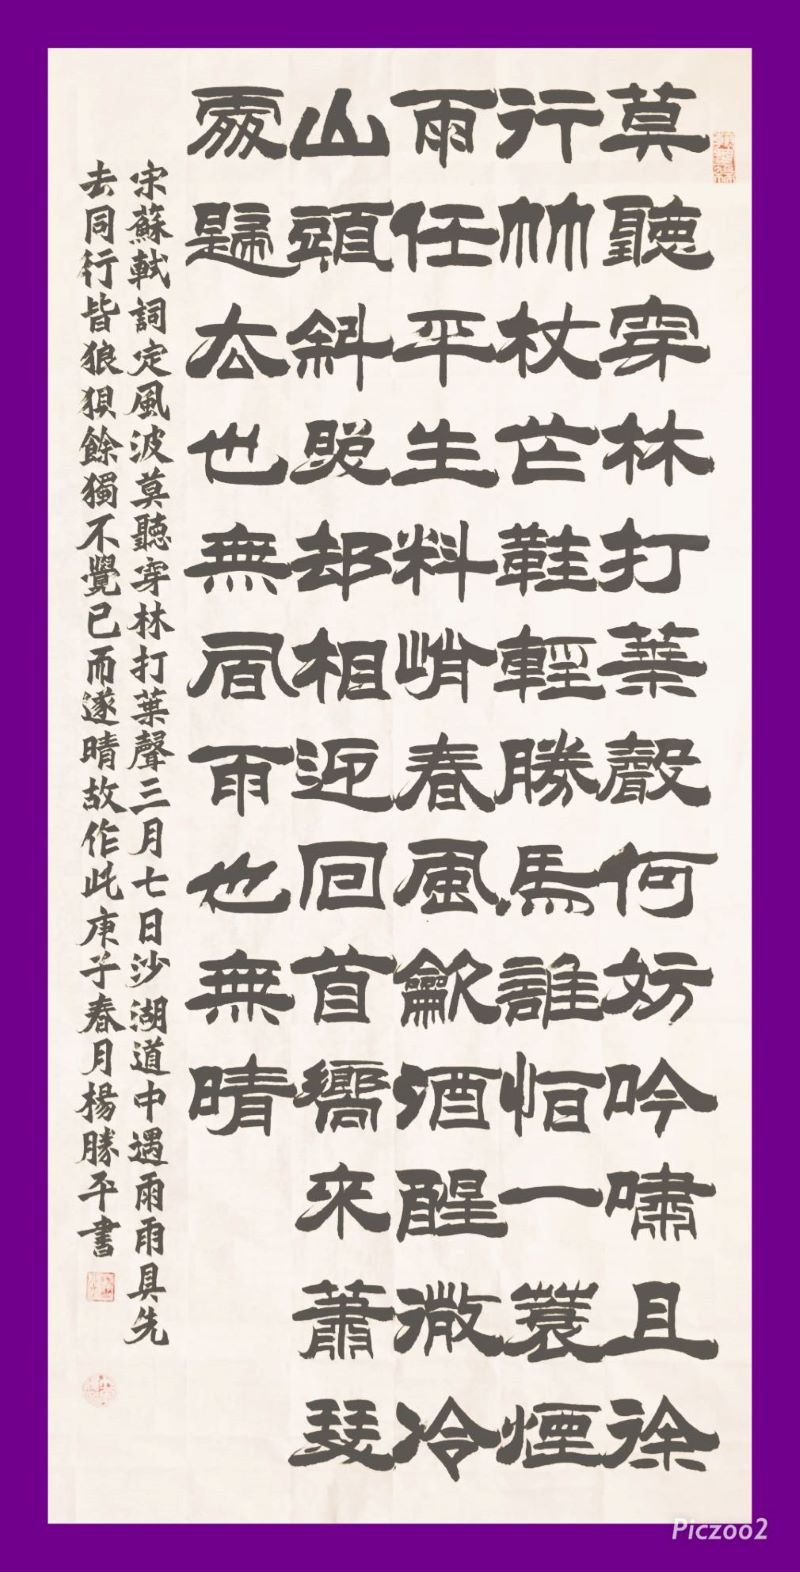 莫聽穿林打葉聲何妨吟嘯且徐
行竹杖芒鞋輕勝馬誰怕一蓑煙
雨任平生料峭春風龡酒醒微冷
山頭斜照却相迎回首嚮來蕭瑟
處歸去也無風雨也無晴
宋蘇軾詞定風波莫聽穿林打葉聲三月七日沙湖道中遇雨雨具先
去同行皆狼狽餘獨不覺已而遂晴故作此庚子春月楊勝平書
Piczoo2